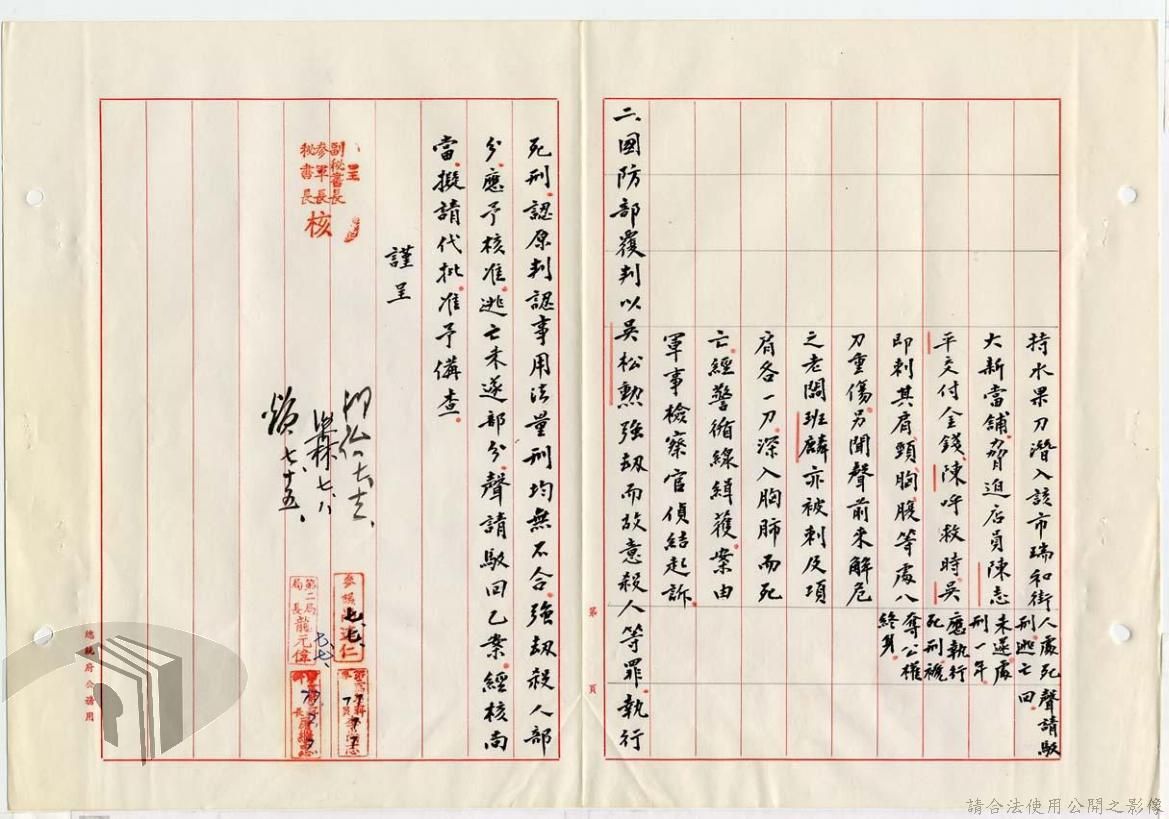 持水果刀潛入該市瑞和街
大新當舖，脅迫店員陳志
平交付金錢，陳呼救時，吳
即刺其肩、頸、胸、腹等處八
刀重傷，另聞聲前來解危
之老闆班麟亦被刺及項
肩各一刀，深入胸肺而死
亡。經警循線緝獲，案由
軍事檢察官偵結起訴。
人處死
刑，逃亡
未遂處
刑一年，
應執行
死刑，褫
奪公權
終身。
聲請駁
回。
二、國防部覆判以吳松勲強劫而故意殺人等罪，執行
死刑，認原判認事用法量刑均無不合，強劫殺人部
分，應予核准，逃亡未遂部分，聲請駁回乙案，經核尚
當，擬請代批：准予備查。
謹呈
呈
副秘書長
參軍長
秘書長
核
七、八
七、十五、
第二局
局長龍元偉
七、七、
總統府公務用
第 頁
請合法使用公開之影像